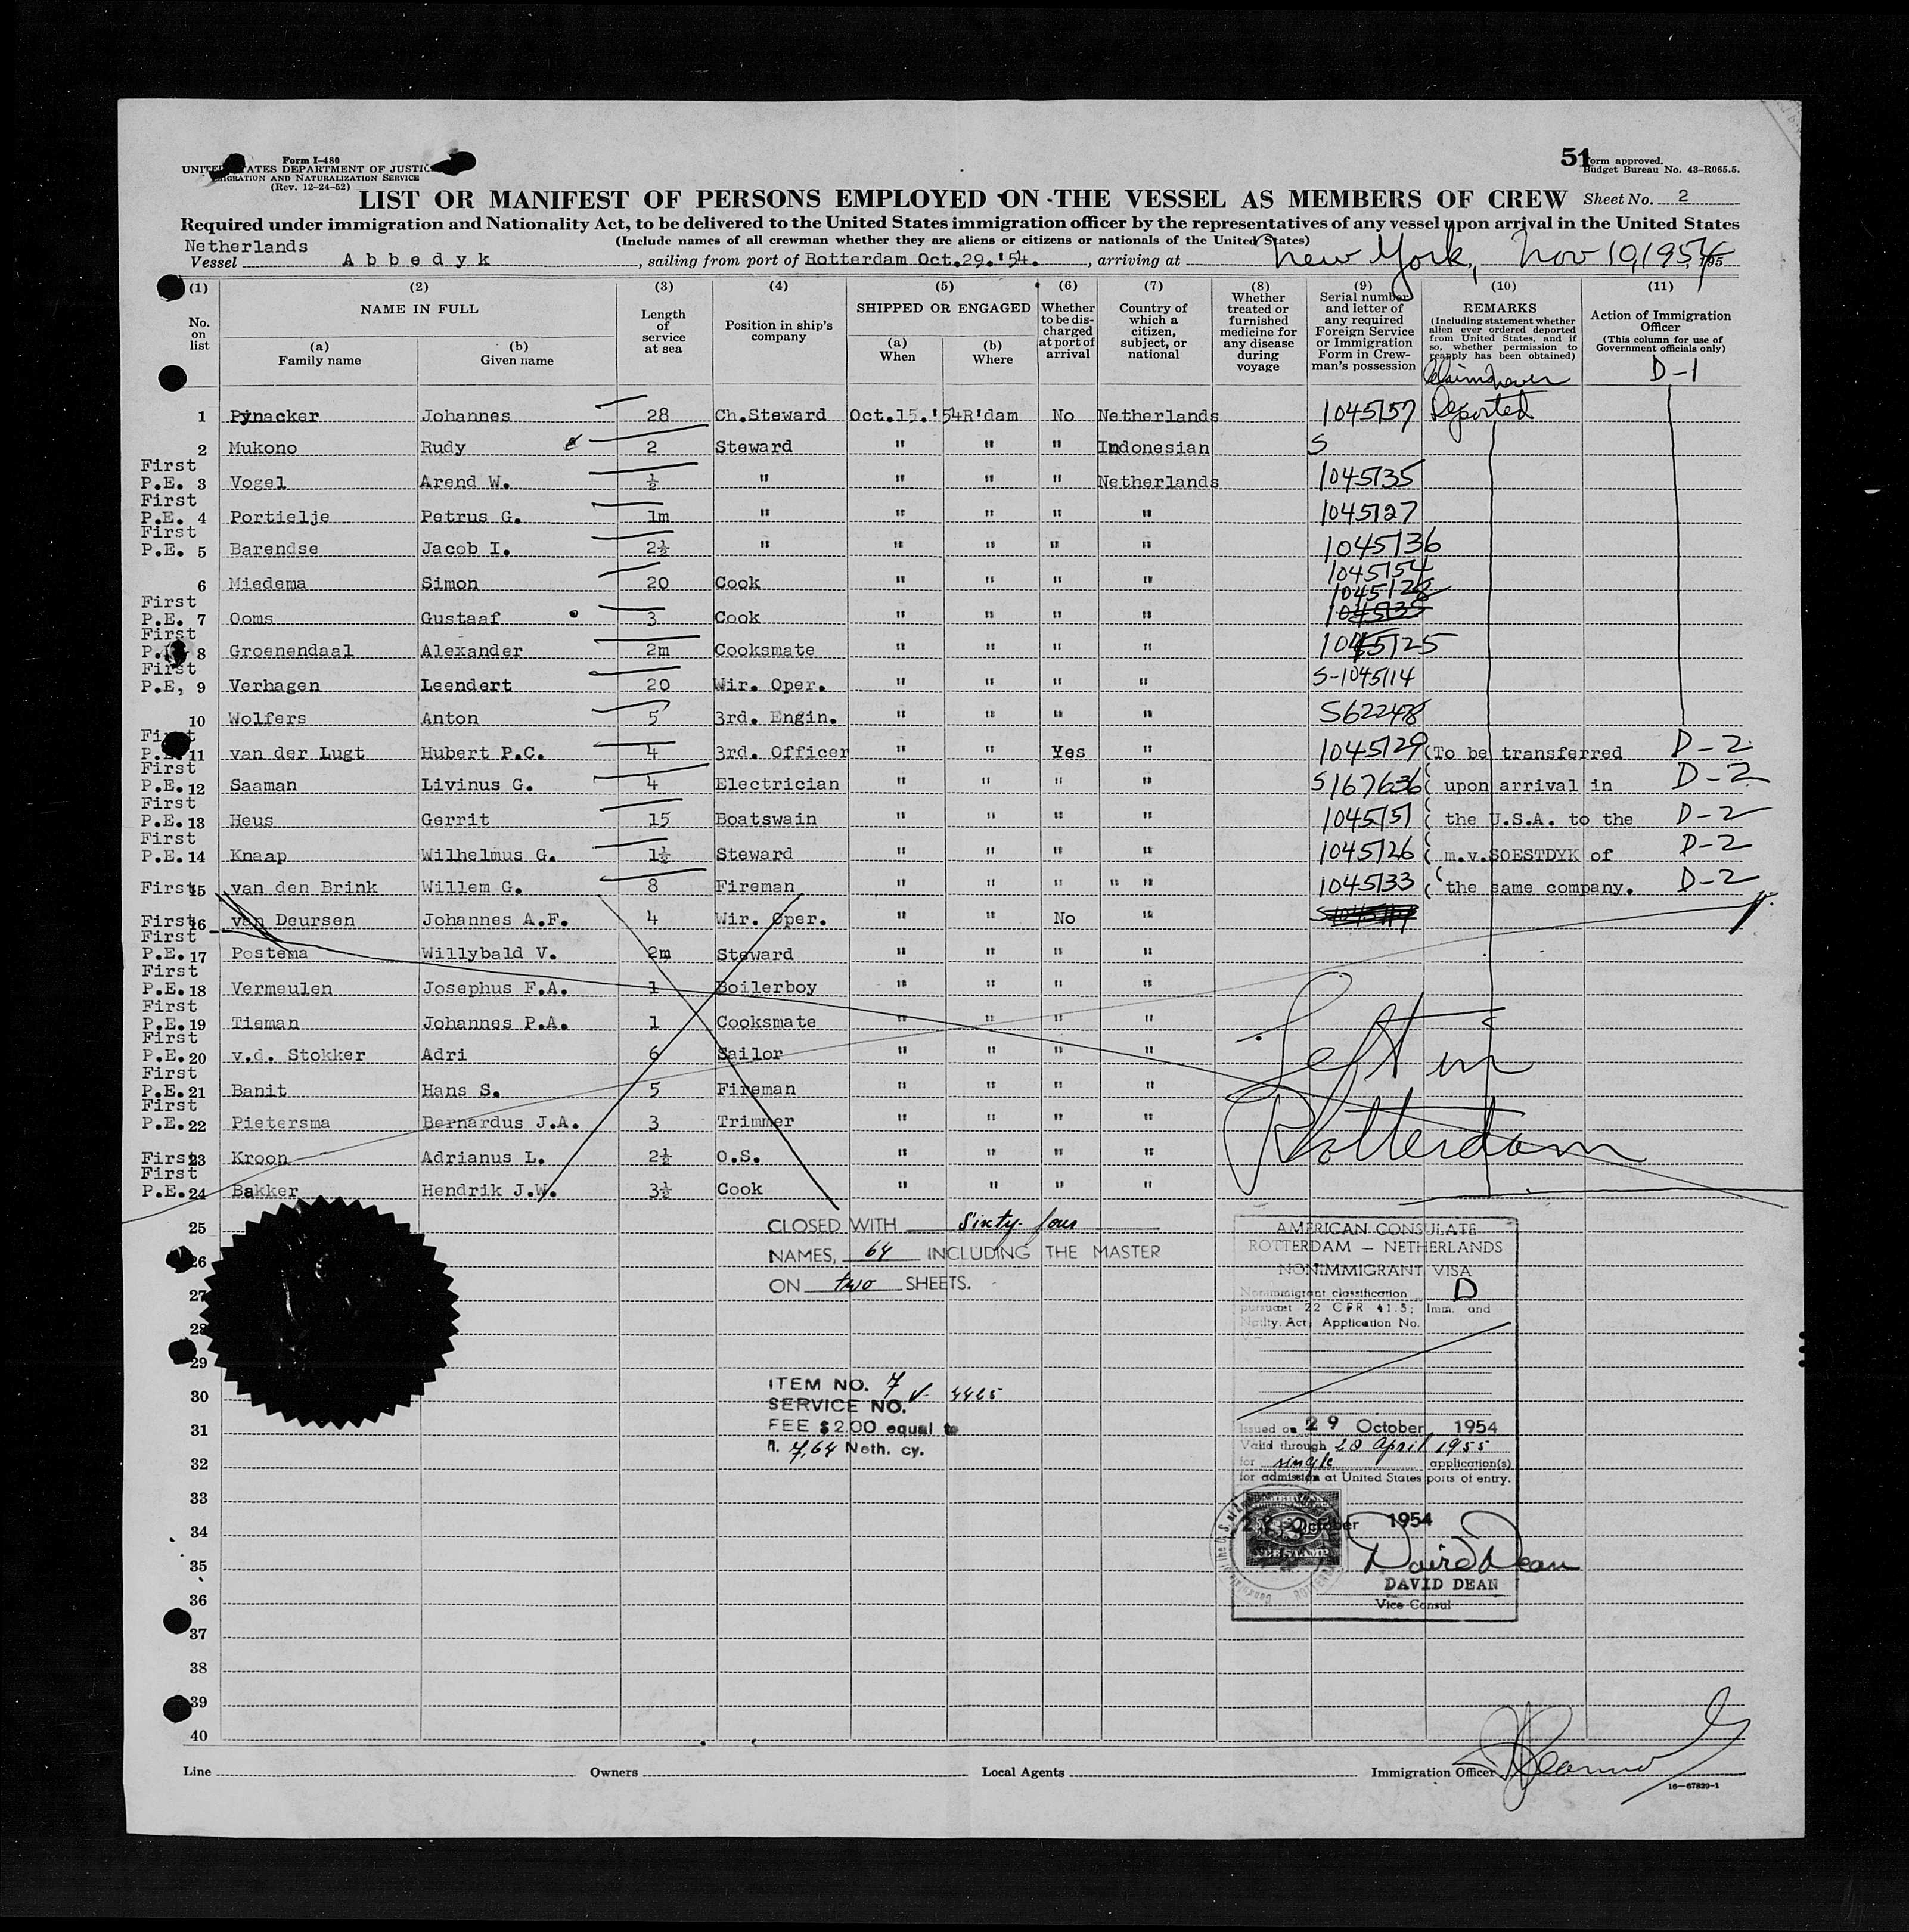 Form I-480
UNITED STATES DEPARTMENT OF JUSTICE
IMMIGRATION AND NATURALIZATION SERVICE
(Rev. 12-24-52)
51
Form approved.
Budget Bureau No. 43-R065.5.
LIST OR MANIFEST OF PERSONS EMPLOYED ON THE VESSEL AS MEMBERS OF CREW
Sheet No. 2
Required under immigration and Nationality Act, to be delivered to the United States immigration officer by the representatives of any vessel upon arrival in the United States
(Include names of all crewman whether they are aliens or citizens or nationals of the United States)
Netherlands
Vessel Abbedyk, sailing from port of Rotterdam Oct.29.'54., arriving at New York, Nov 10, 1954, 195
(1) (2) (3) (4) (5) (6) (7) (8) (9) (10) (11)
No. on list
NAME IN FULL
(a) Family name
(b) Given name
Length of service at sea
Position in ship's company
SHIPPED OR ENGAGED
(a) When
(b) Where
Whether to be discharged at port of arrival
Country of which a citizen, subject, or national
Whether treated or furnished medicine for any disease during voyage
Serial number and letter of any required Foreign Service or Immigration Form in Crewman's possession
REMARKS
(Including statement whether alien ever ordered deported from United States, and if so, whether permission to reapply has been obtained)
Action of Immigration Officer
(This column for use of Government officials only)
never D-1
1 Pynacker Johannes 28 Ch.Steward Oct.15.'54 R'dam No Netherlands 1045157 Deported
2 Mukono Rudy 2 Steward " " " Indonesian S
First P.E. 3 Vogel Arend W. ½ " " " " Netherlands 1045135
First P.E. 4 Portielje Petrus G. 1m " " " " " 1045127
First P.E. 5 Barendse Jacob I. 2½ " " " " " 1045136
6 Miedema Simon 20 Cook " " " " 1045154
First P.E. 7 Ooms Gustaaf 3 Cook " " " " 1045128 1045135
First P.E. 8 Groenendaal Alexander 2m Cooksmate " " " " 1045125
First P.E, 9 Verhagen Leendert 20 Wir. Oper. " " " " S-1045114
10 Wolfers Anton 5 3rd. Engin. " " " " S622478
First P.E. 11 van der Lugt Hubert P.C. 4 3rd. Officer " " Yes " 1045129 (To be transferred D-2
First P.E. 12 Saaman Livinus G. 4 Electrician " " " " S167636 ( upon arrival in D-2
First P.E. 13 Heus Gerrit 15 Boatswain " " " " 1045151 ( the U.S.A. to the D-2
First P.E. 14 Knaap Wilhelmus G. 1½ Steward " " " " 1045126 ( m.v.SOESTDYK of D-2
First 15 van den Brink Willem G. 8 Fireman " " " " " 1045133 ( the same company. D-2
First 16 van Deursen Johannes A.F. 4 Wir. Oper. " " No " S1045114
First P.E. 17 Postema Willybald V. 2m Steward " " " "
First P.E. 18 Vermeulen Josephus F.A. 1 Boilerboy " " " "
First P.E. 19 Tieman Johannes P.A. 1 Cooksmate " " " "
First P.E. 20 v.d. Stokker Adri 6 Sailor " " " "
First P.E. 21 Banit Hans S. 5 Fireman " " " "
First P.E. 22 Pietersma Bernardus J.A. 3 Trimmer " " " "
First 23 Kroon Adrianus L. 2½ O.S. " " " "
First P.E. 24 Bakker Hendrik J.W. 3½ Cook " " " "
Left in
Rotterdam
25
26
27
28
29
30
31
32
33
34
35
36
37
38
39
40
CLOSED WITH Sixty four
NAMES, 64 INCLUDING THE MASTER
ON two SHEETS.
ITEM NO. 7
SERVICE NO. V- 4425
FEE $2.00 equal to
fl. 7,64 Neth. cy.
AMERICAN CONSULATE
ROTTERDAM — NETHERLANDS
NONIMMIGRANT VISA
Nonimmigrant classification D
pursuant 22 CFR 41.5; Imm. and
Natlty. Act; Application No.
V-
Issued on 29 October 1954
Valid through 28 April 1955
for single application(s)
for admission at United States ports of entry.
29 October 1954
FEE STAMP
David Dean
DAVID DEAN
Vice Consul
Line
Owners
Local Agents
Immigration Officer
16—67829-1